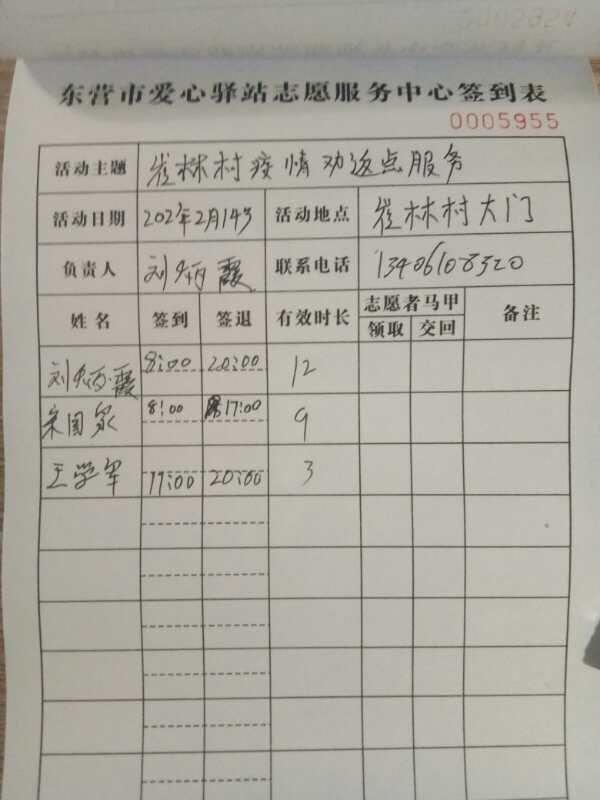 东营市爱心驿站志愿服务中心签到表
0005955
活动主题 崔林村疫情劝返点服务
活动日期 202年2月14号 活动地点 崔林村大门
负责人 刘炳霞 联系电话 13406108320
姓名 签到 签退 有效时长 志愿者马甲 备注
领取 交回
刘炳霞 8:00 20:00 12
宋国家 8:00 17:00 9
王学军 17:00 20:00 3